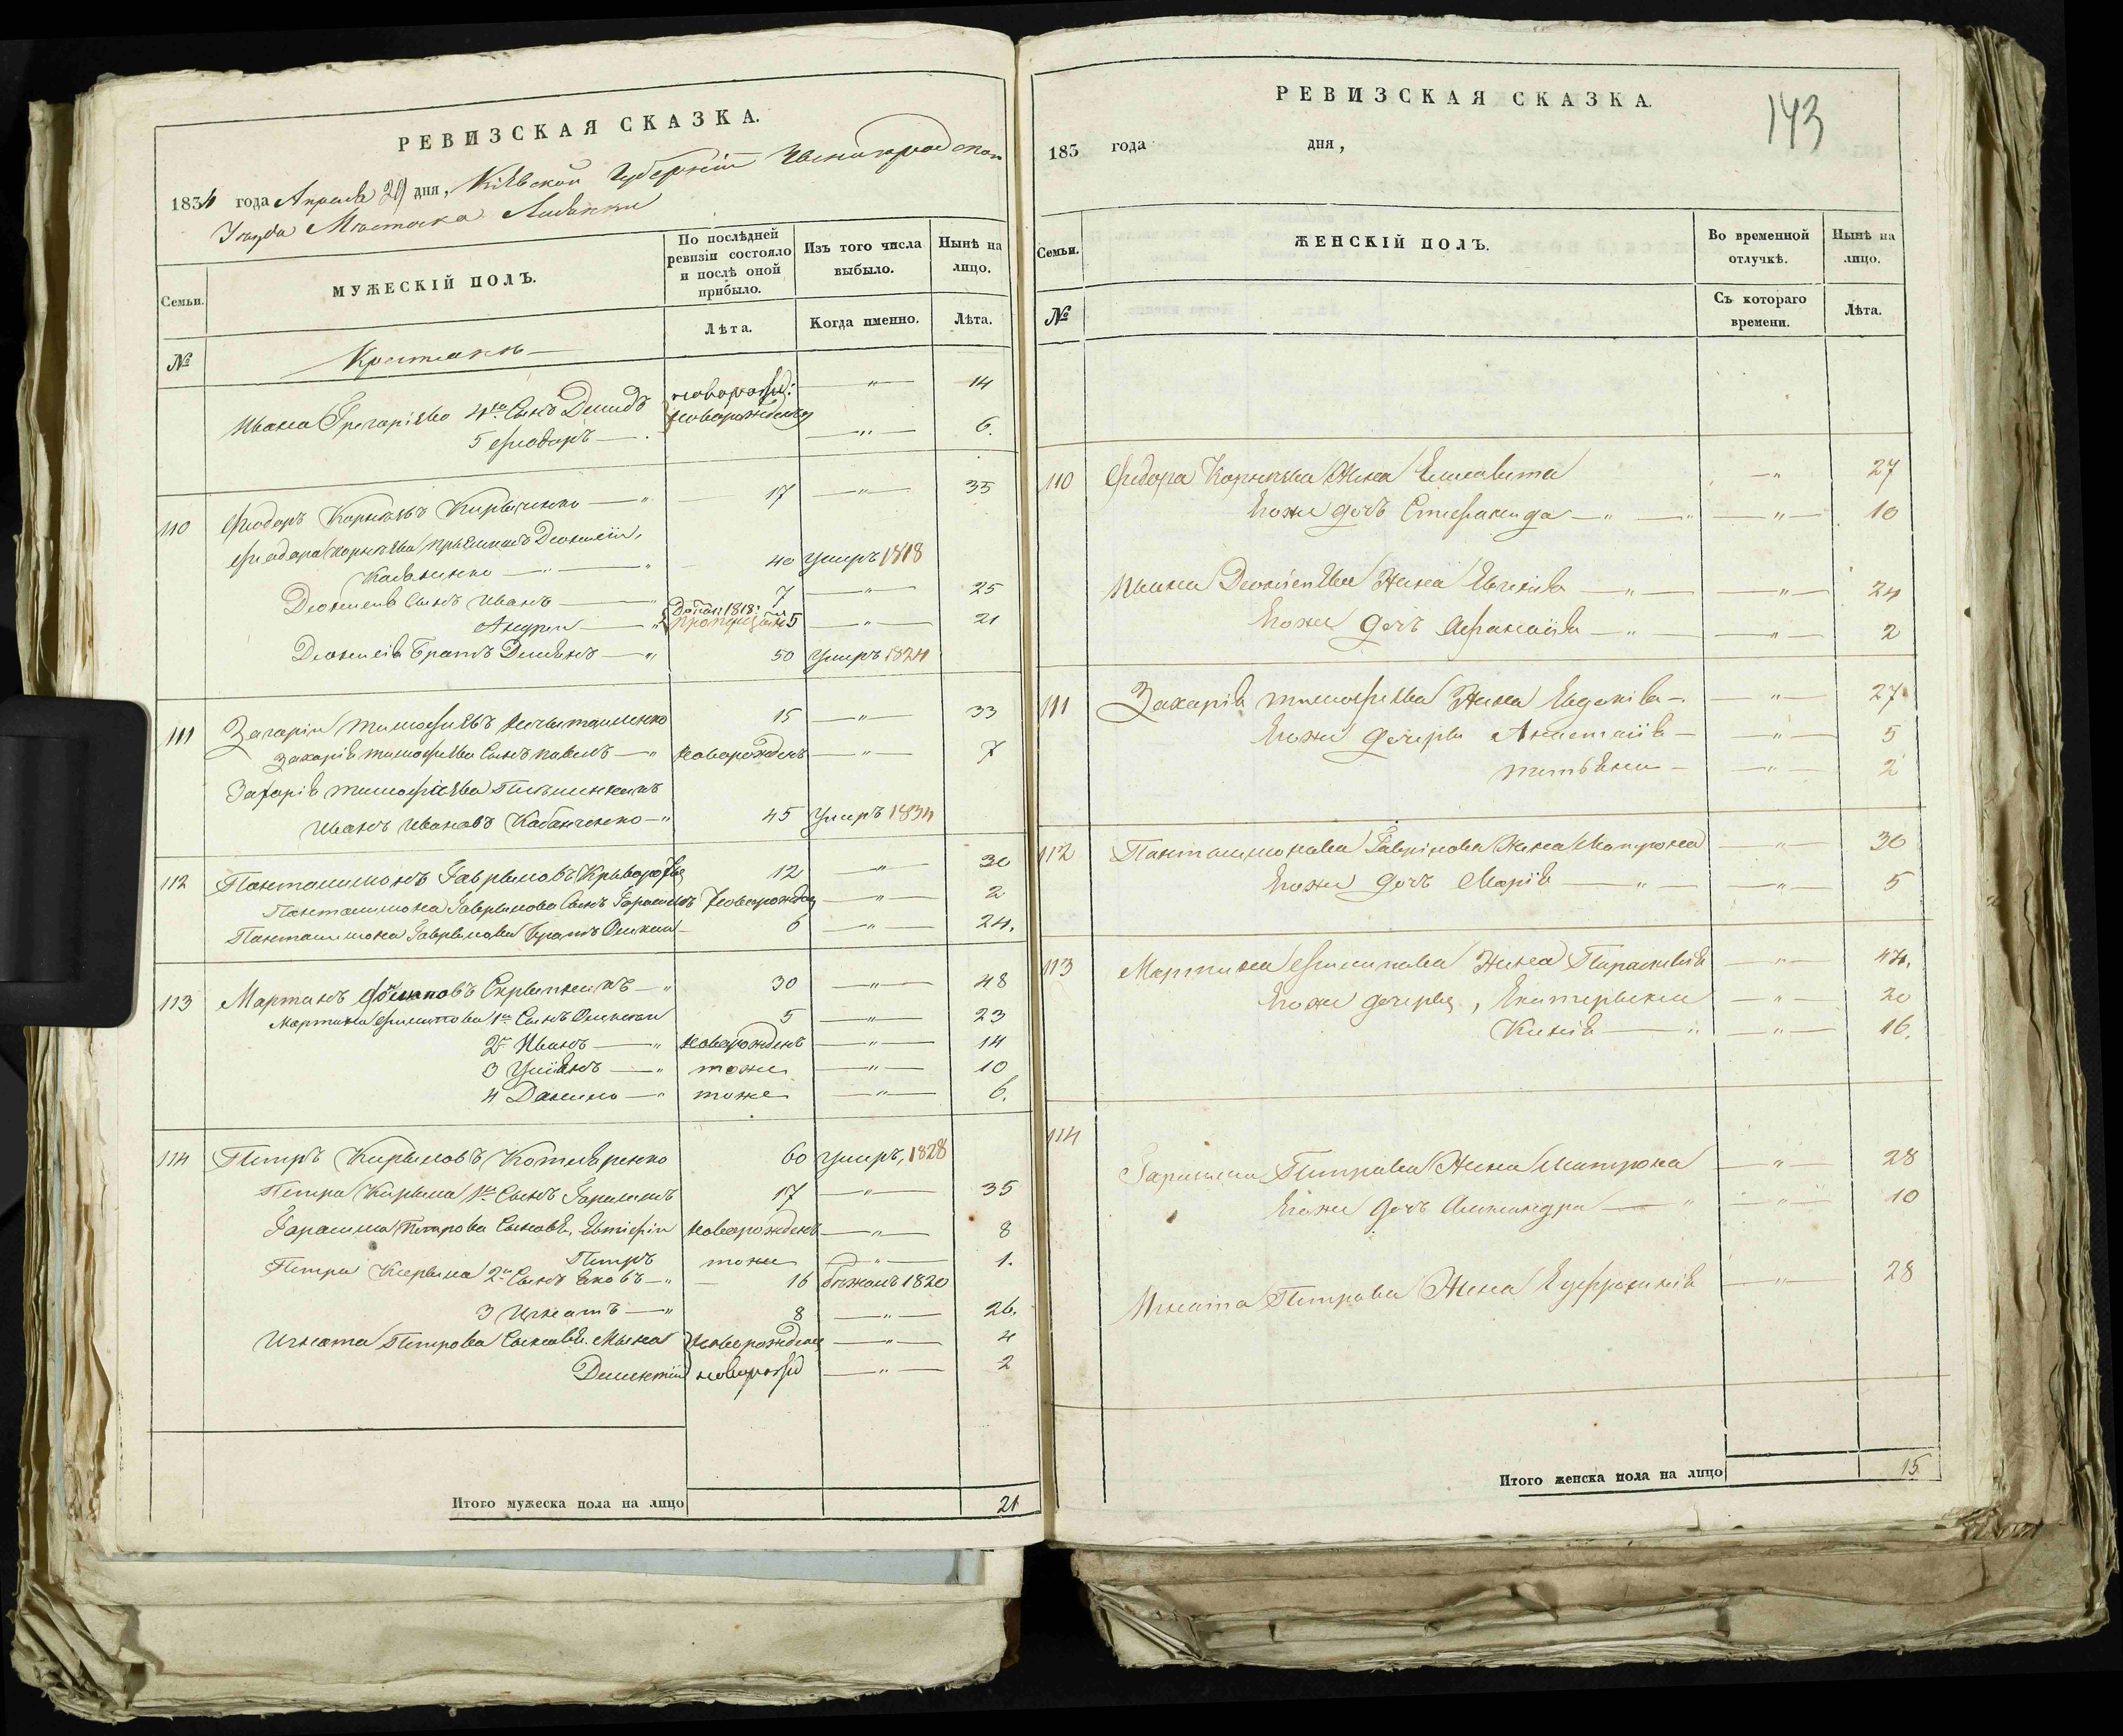 РЕВИЗСКАЯ СКАЗКА.
1834 года Апреля 29 дня, Кіевской Губерніи Звенигородскаго
Уезда Местечка Лисянки
Семьи.
МУЖЕСКІЙ ПОЛЪ.
По послѣдней ревизіи состояло и послѣ оной прибыло.
Изъ того числа выбыло.
Нынѣ на лицо.
№
Крестьянъ
Лѣта.
Когда именно.
Лѣта.
Ивана Григоріева 4й Сынъ Демидъ новорожд: — " — 14
5 Фіодоръ — новорожденъ — " — 6.
110 Фіодоръ Корнѣевъ Кириченко — " 17 — " — 35
Фіодора Корнѣева Деонисій,
— " — " 40 умеръ 1818
Деонисія Сынъ Иванъ — " 7 — " — 25
Андрей — " 1818: 5 — " — 21
Деонисія Братъ Демьянъ — " 50 умеръ 1824
111 Захарій Тимофіевъ 15 — " — 33
Захарія Тимофіева Сынъ Павелъ — " новорожденъ — " — 7
Захарія Тимофіева Племянникъ
Иванъ Ивановъ Кабанченко — " 45 умеръ 1834
112 Панталимонъ Гавриловъ 12 — " — 30
Панталимона Гаврилова Сынъ Гарасимъ новорожден — " — 2
Панталимона Гаврилова Братъ 6 — " — 24.
113 Мартинъ Филиповъ Скрыпникъ — " 30 — " — 48
Мартина Филипова 1й Сынъ Алексей 5 — " — 23
2й Иванъ — " новорожденъ — " — 14
3 Уліянъ — " тоже — " — 10
4 Данило — " тоже — " — 6.
114 Петръ Кириловъ Котляренко 60 умеръ, 1828
Петра Кирила 1й Сынъ Гарасимъ 17 — " — 35
Гарасима Петрова Сыновья, Евтіфій новорожденъ — " — 8
Петръ тоже — " — 1.
Петра Кирила 2й Сынъ Яковъ — " — 16 бѣжалъ 1820
3 Игнатъ — " 8 — " — 26.
Игната Петрова Сыновья. Мина новорожден — " — 4
Дементій новорожд — " — 2
Итого мужеска пола на лицо 21
РЕВИЗСКАЯ СКАЗКА.
143
183 года дня,
Семьи.
ЖЕНСКІЙ ПОЛЪ.
Во временной отлучкѣ.
Нынѣ на лицо.
№
Съ котораго времени.
Лѣта.
110 Фидора Корнѣева Жена Елисавета — " 27
Егоже дочь Стефанида — " — " — " — 10
Ивана Деонісіева Жена Евгенія — " — — " — 24
Егоже дочь Афанасія — " — — " — 2
111 Захарія Тимофіева Жена Евдокія — — " — 27
Егоже дочеры Анастасія — — " — 5
Татьяна — — " — 2
112 Панталимона Гаврилова Жена Матрона — " — 30
Егоже дочь Марія — " — — " — 5
113 Мартина Филипова Жена Параскевія — " — 47.
Егоже дочеры, Екатерына — " — 20
Ксенія — " — " — 16.
114
Гарасима Петрова Жена Матрона — " — 28
Егоже дочь Александра — " — " — 10
Игната Петрова Жена Ефросинія — " — 28
Итого женска пола на лицо 15